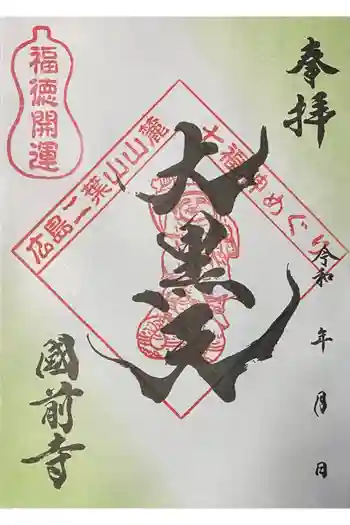 奉拝
福徳開運
広島二葉山山麓
七福神めぐり
大黒天
令和 年 月 日
國前寺